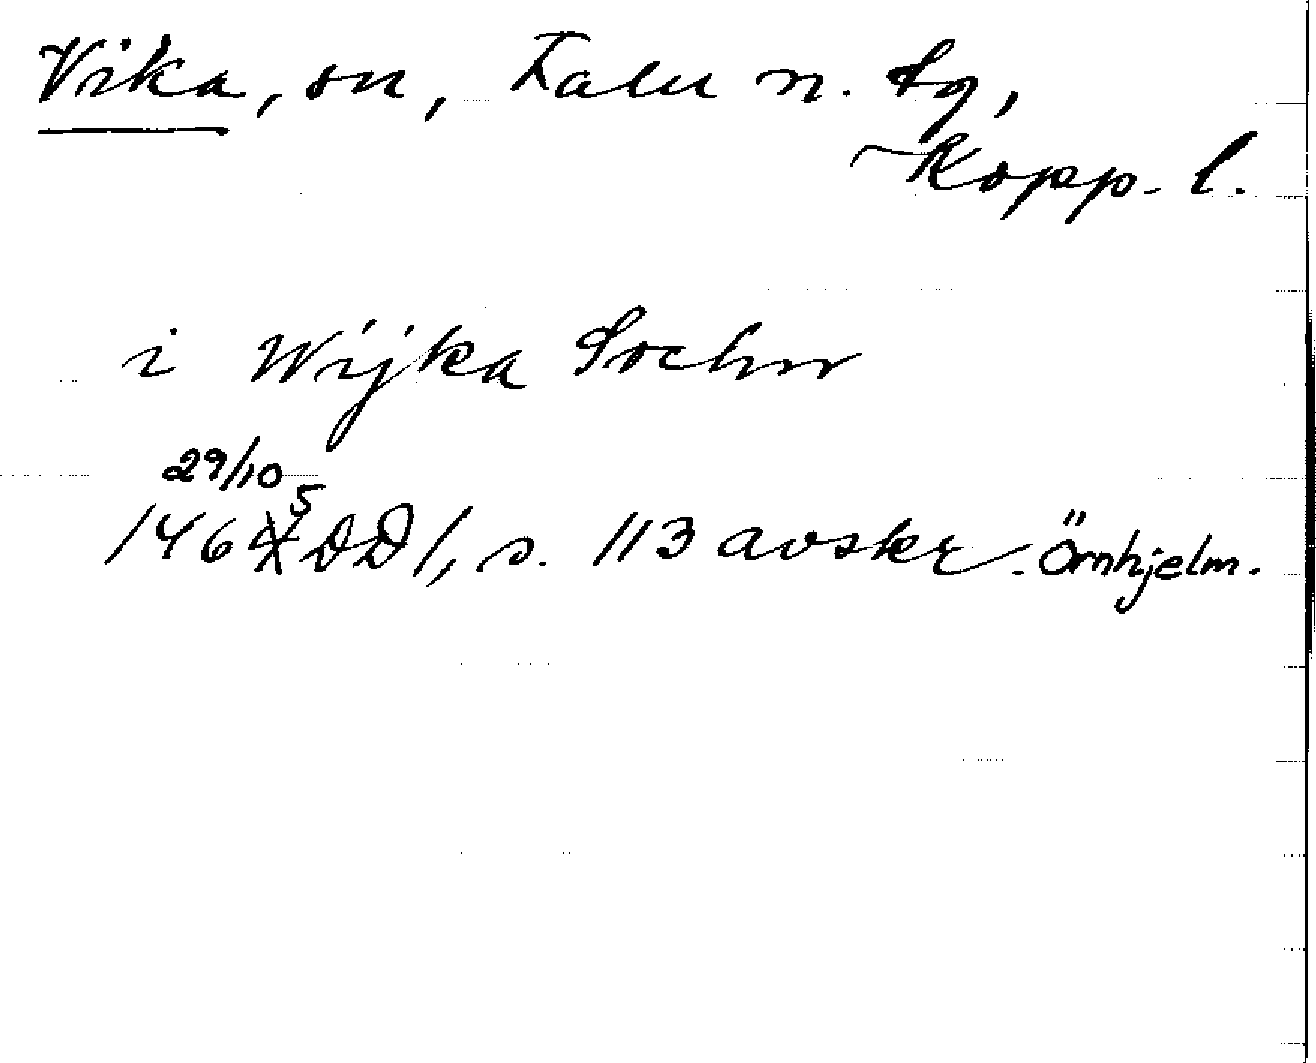 Vika, sn, Falu n. tg,
Kopp. l.
i Wijka Sochn
29/10 5
1464 DD 1, s. 113 avskr. Örnhjelm.